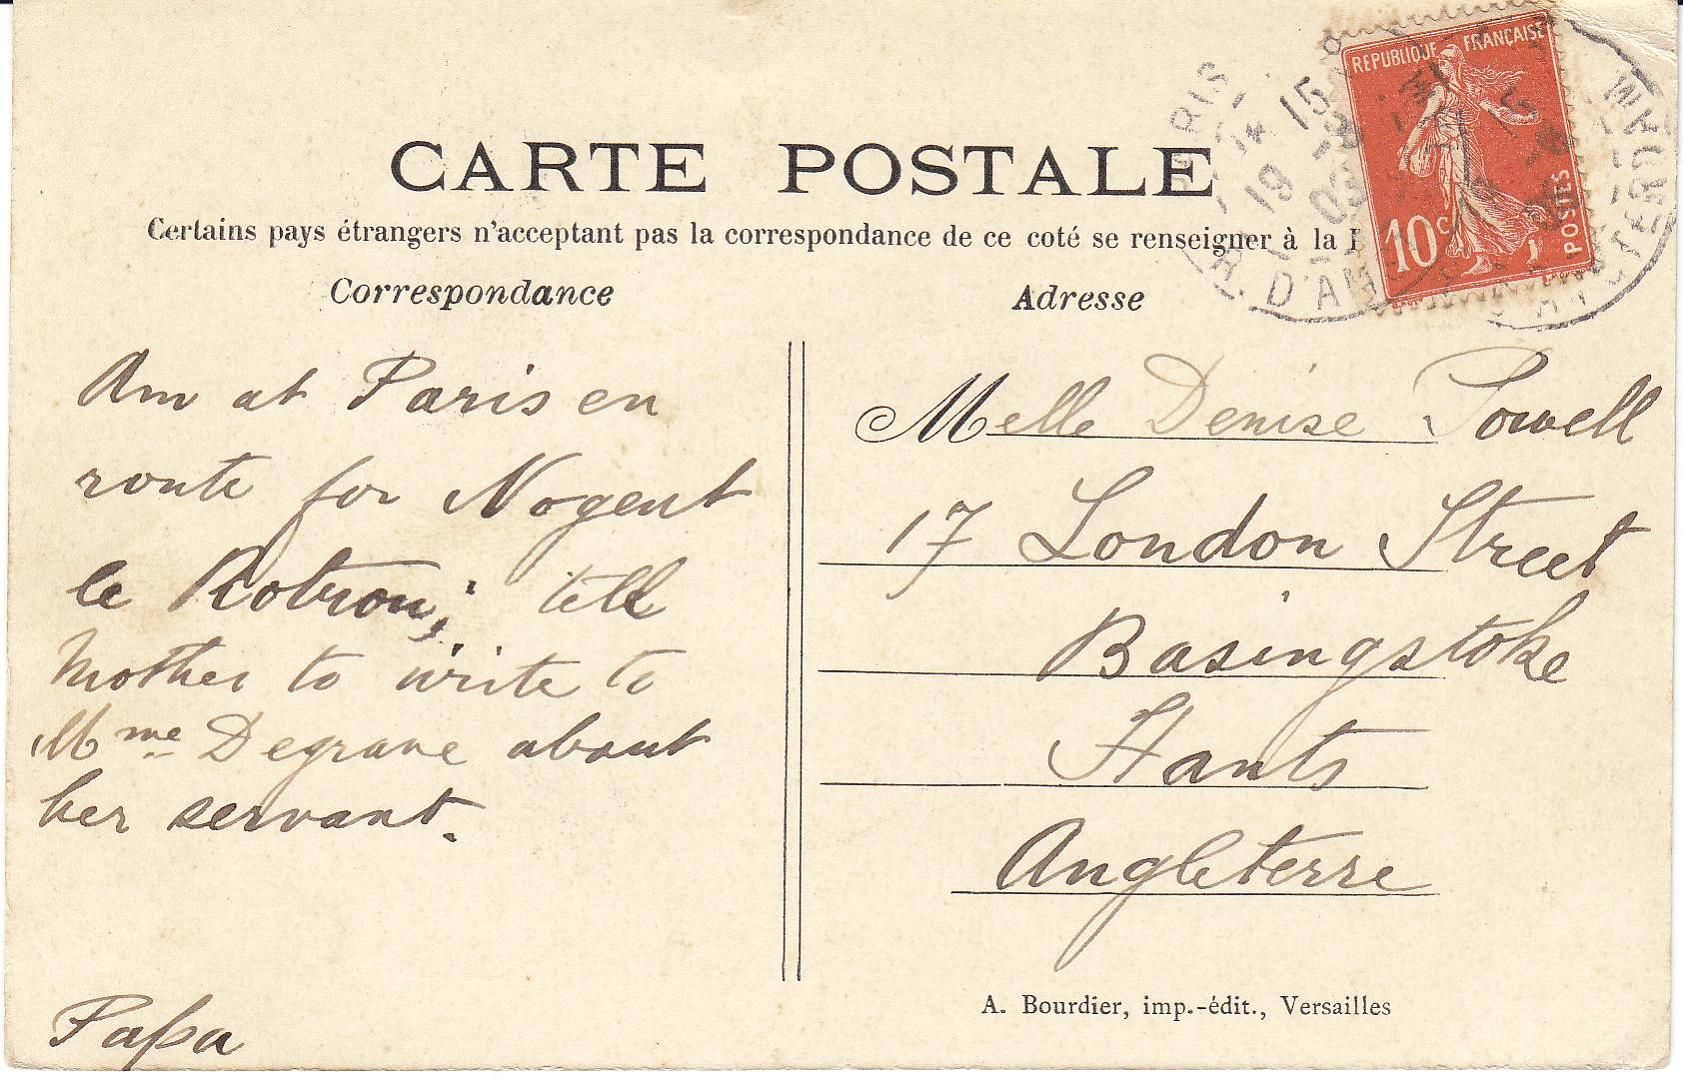 CARTE POSTALE
Certains pays étrangers n'acceptant pas la correspondance de ce coté se renseigner à la
Correspondance
Am at Paris en
route for Nogent
le Rotrou; tell
Mother to write to
Mme Degrave about
her servant.
Papa
Adresse
Melle Denise Powell
17 London Street
Basingstoke
Hants
Angleterre
A. Bourdier, imp.-édit., Versailles
REPUBLIQUE FRANÇAISE
10c
POSTES
PARIS
R. D'AMSTERDAM